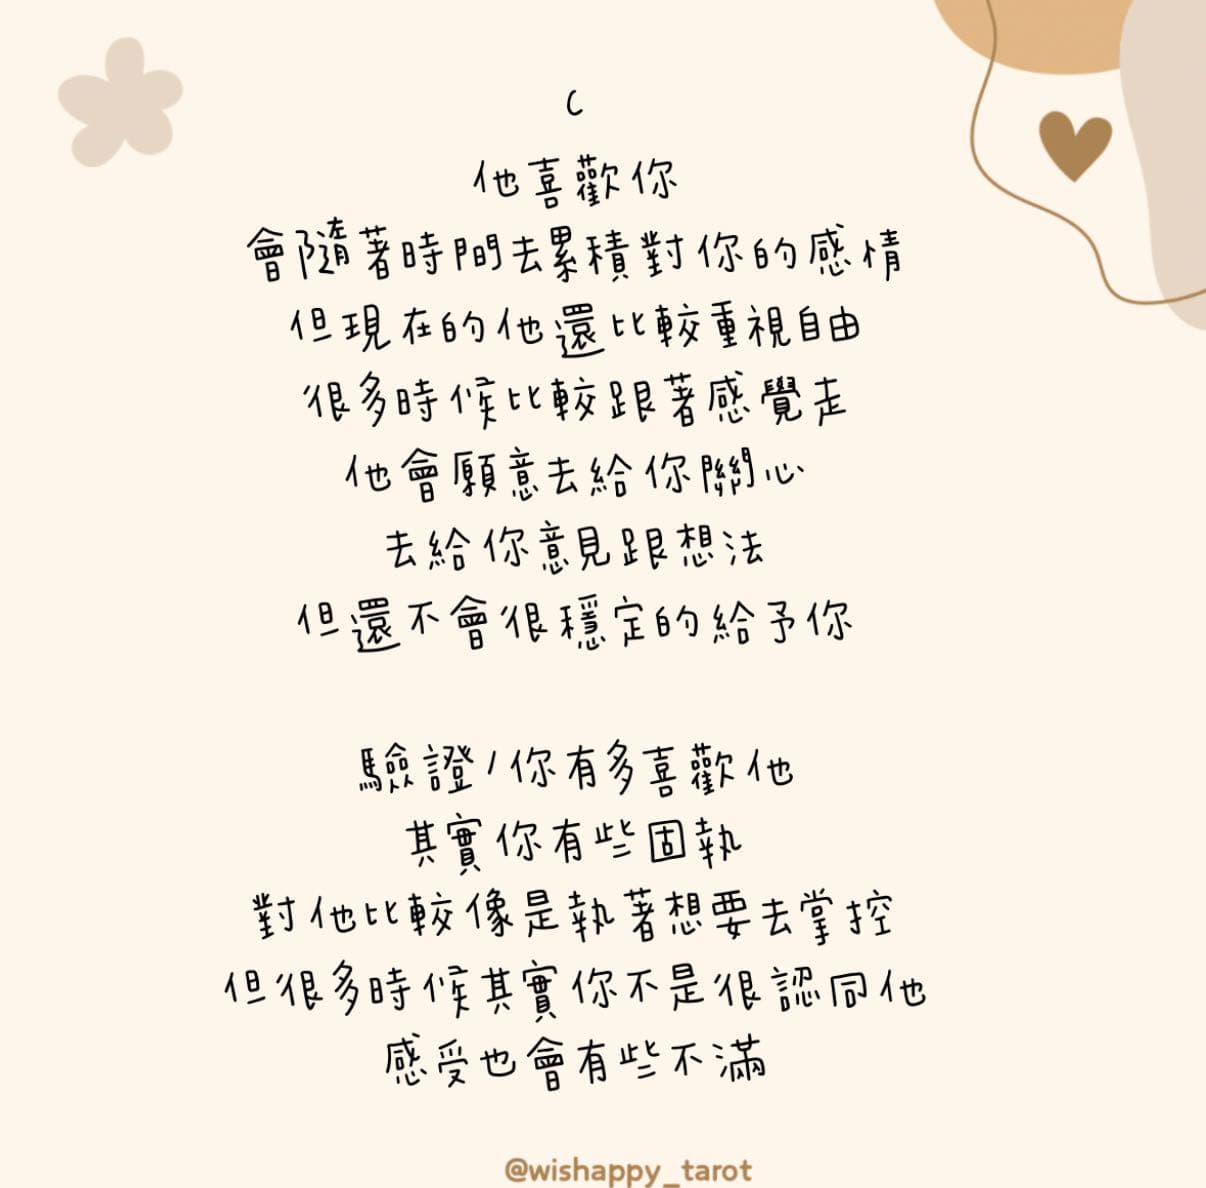 C
他喜歡你
會隨著時間去累積對你的感情
但現在的他還比較重視自由
很多時候比較跟著感覺走
他會願意去給你關心
去給你意見跟想法
但還不會很穩定的給予你
驗證/你有多喜歡他
其實你有些固執
對他比較像是執著想要去掌控
但很多時候其實你不是很認同他
感受也會有些不滿
@wishappy_tarot